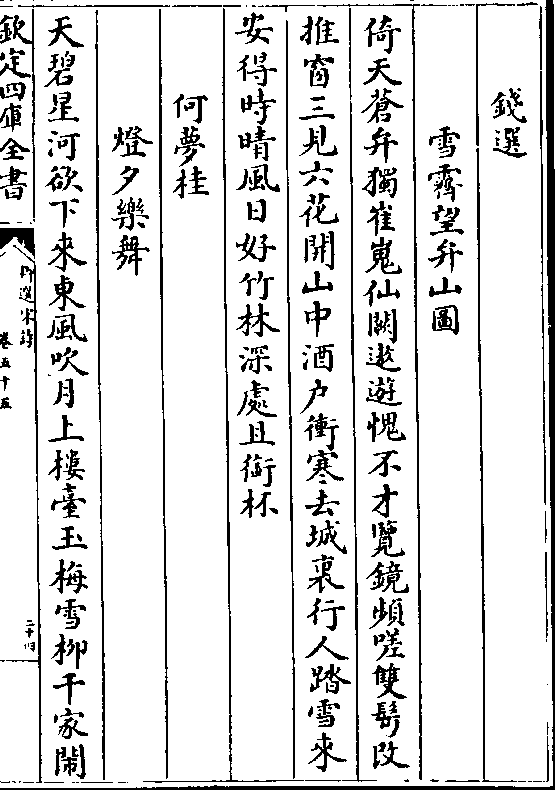 錢選
雪霽望弁山圖
倚天蒼弁獨崔嵬仙闕遨遊愧不才覽鏡頻嗟雙鬂改
推窗三見六花開山中酒户衝寒去城裏行人踏雪來
安得時晴風日好竹林深處且銜杯
何夢桂
燈夕樂舞
天碧星河欲下來東風吹月上樓臺玉梅雪柳千家鬧
欽定四庫全書
御選宋詩
卷五十五
二十四